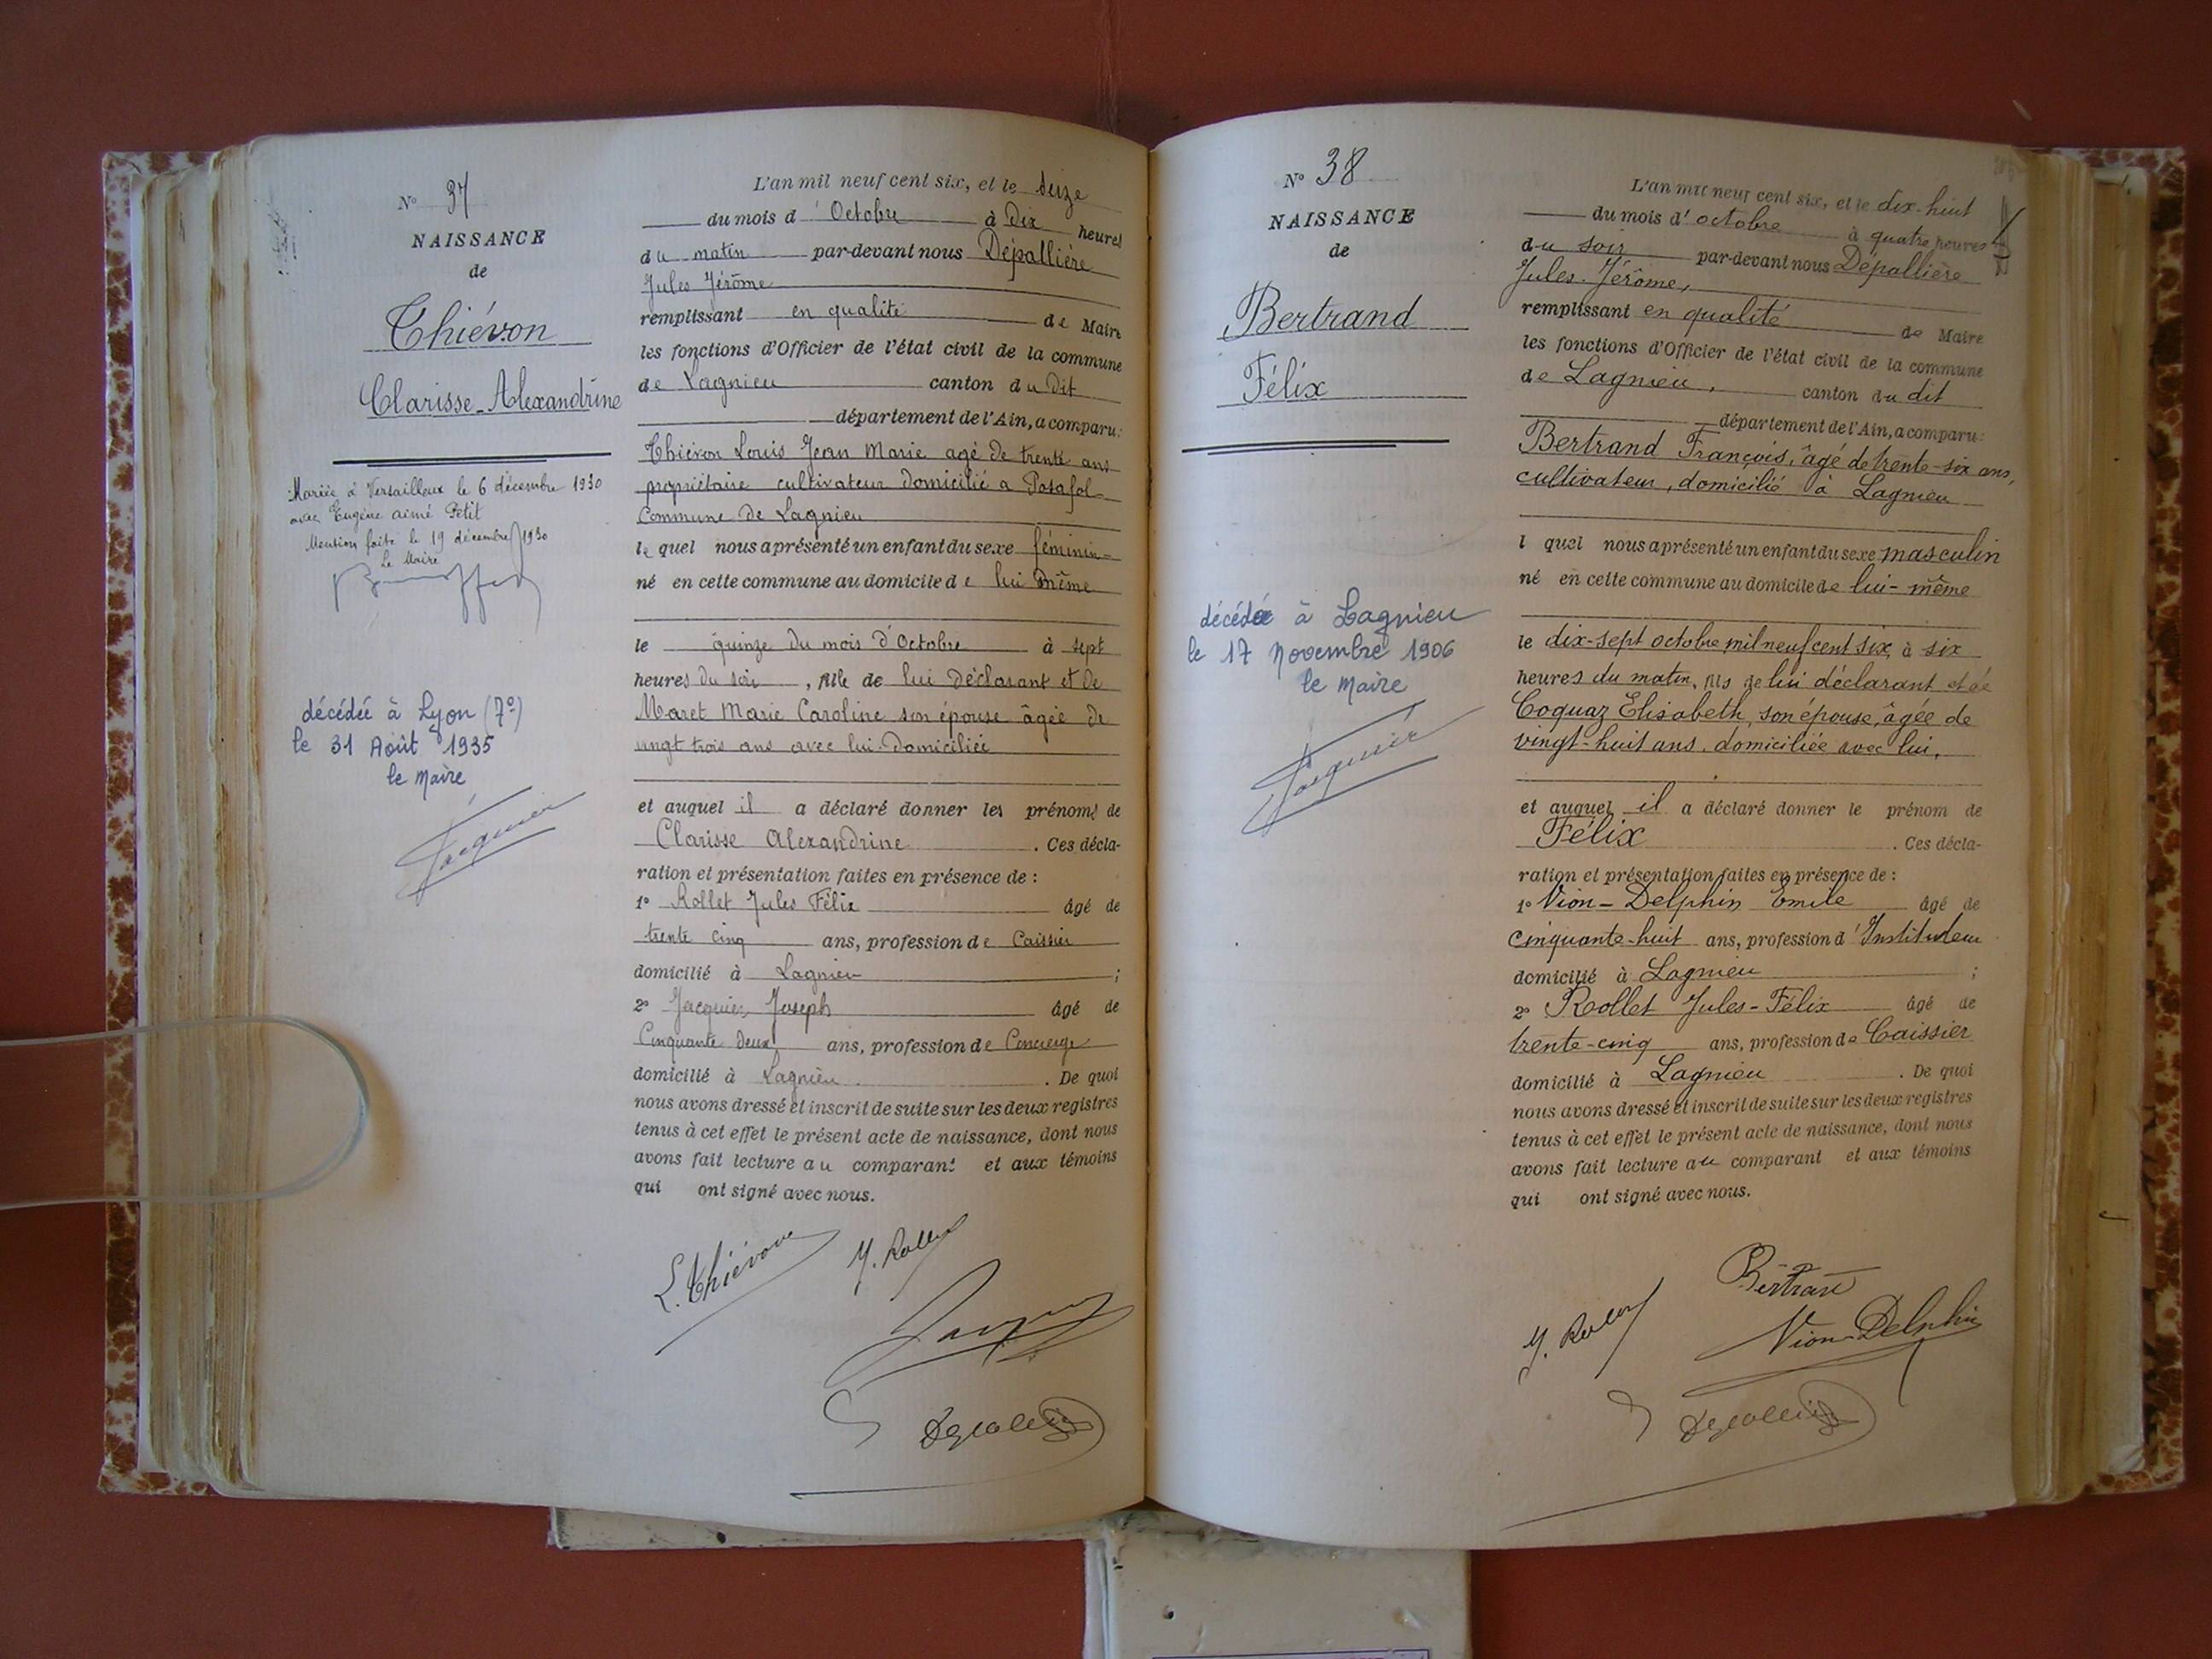 Nº 37
NAISSANCE
de
Thiévon
Clarisse-Alexandrine
Mariée à Versailleux le 6 décembre 1930
avec Eugène aimé Petit
Mention faite le 19 décembre 1930
Le Maire
décédée à Lyon (7e)
le 31 Août 1935
le Maire
Jacquier
L'an mil neuf cent six, et le seize
du mois d'Octobre à Dix heures
du matin par-devant nous Dépallière
Jules Jérôme
remplissant en qualité de Maire
les fonctions d'Officier de l'état civil de la commune
de Lagnieu canton du dit
département de l'Ain, a comparu:
Thiévon Louis Jean Marie agé de trente ans
propriétaire cultivateur domicilié a Posafol
Commune de Lagnieu
le quel nous a présenté un enfant du sexe féminin
né en cette commune au domicile de lui même
le quinze du mois d'Octobre à sept
heures du soir, fille de lui déclarant et de
Maret Marie Caroline son épouse âgée de
vingt trois ans avec lui Domiciliée
et auquel il a déclaré donner les prénoms de
Clarisse Alexandrine. Ces décla-
ration et présentation faites en présence de :
1º Rollet Jules Félix âgé de
trente cinq ans, profession de Caissier
domicilié à Lagnieu ;
2º Jacquier Joseph âgé de
Cinquante deux ans, profession de Concierge
domicilié à Lagnieu. De quoi
nous avons dressé et inscrit de suite sur les deux registres
tenus à cet effet le présent acte de naissance, dont nous
avons fait lecture au comparant et aux témoins
qui ont signé avec nous.
L. Thiévon J. Rollet
Nº 38
NAISSANCE
de
Bertrand
Félix
décédé à Lagnieu
le 17 Novembre 1906
le Maire
Jacquier
L'an mil neuf cent six, et le dix-huit
du mois d'octobre à quatre heures
du soir par-devant nous Dépallière
Jules-Jérôme,
remplissant en qualité de Maire
les fonctions d'Officier de l'état civil de la commune
de Lagnieu, canton du dit
département de l'Ain, a comparu:
Bertrand François, âgé de trente-six ans,
cultivateur, domicilié à Lagnieu
l quel nous a présenté un enfant du sexe masculin
né en cette commune au domicile de lui-même
le dix-sept octobre mil neuf cent six, à six
heures du matin, fils de lui déclarant et de
Coquaz Elisabeth, son épouse, âgée de
vingt-huit ans, domiciliée avec lui,
et auquel il a déclaré donner le prénom de
Félix. Ces décla-
ration et présentation faites en présence de :
1º Vion-Delphin Emile âgé de
cinquante-huit ans, profession d'Instituteur
domicilié à Lagnieu ;
2º Rollet Jules-Félix âgé de
trente-cinq ans, profession de Caissier
domicilié à Lagnieu. De quoi
nous avons dressé et inscrit de suite sur les deux registres
tenus à cet effet le présent acte de naissance, dont nous
avons fait lecture au comparant et aux témoins
qui ont signé avec nous.
Bertran
J. Rollet Vion-Delphin